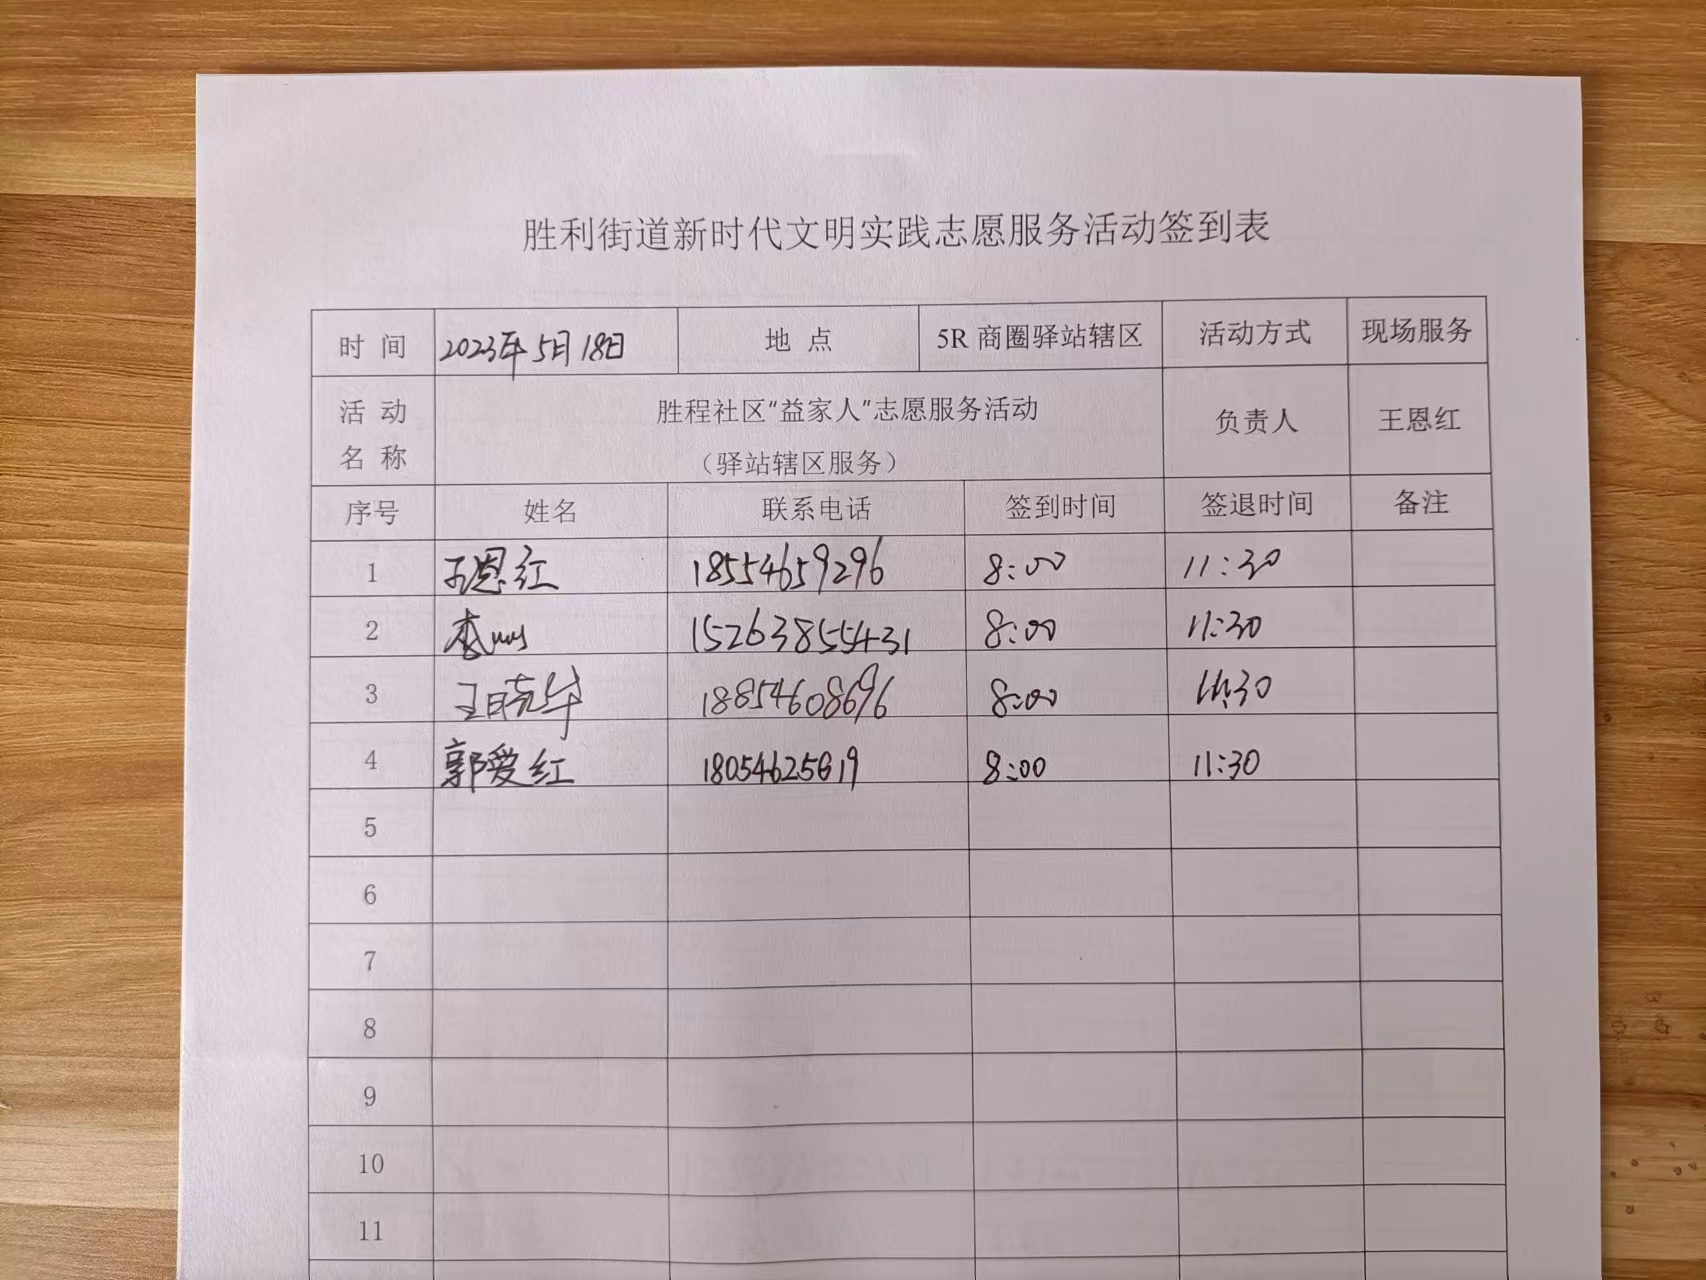 胜利街道新时代文明实践志愿服务活动签到表
时 间 2023年5月18日 地 点 5R 商圈驿站辖区 活动方式 现场服务
活 动 名 称 胜程社区“益家人”志愿服务活动 负责人 王恩红
（驿站辖区服务）
序号 姓名 联系电话 签到时间 签退时间 备注
1 王恩红 18554659296 8:00 11:30
2 李 15263855431 8:00 11:30
3 王晓华 18854608696 8:00 11:30
4 郭爱红 18054625619 8:00 11:30
5
6
7
8
9
10
11